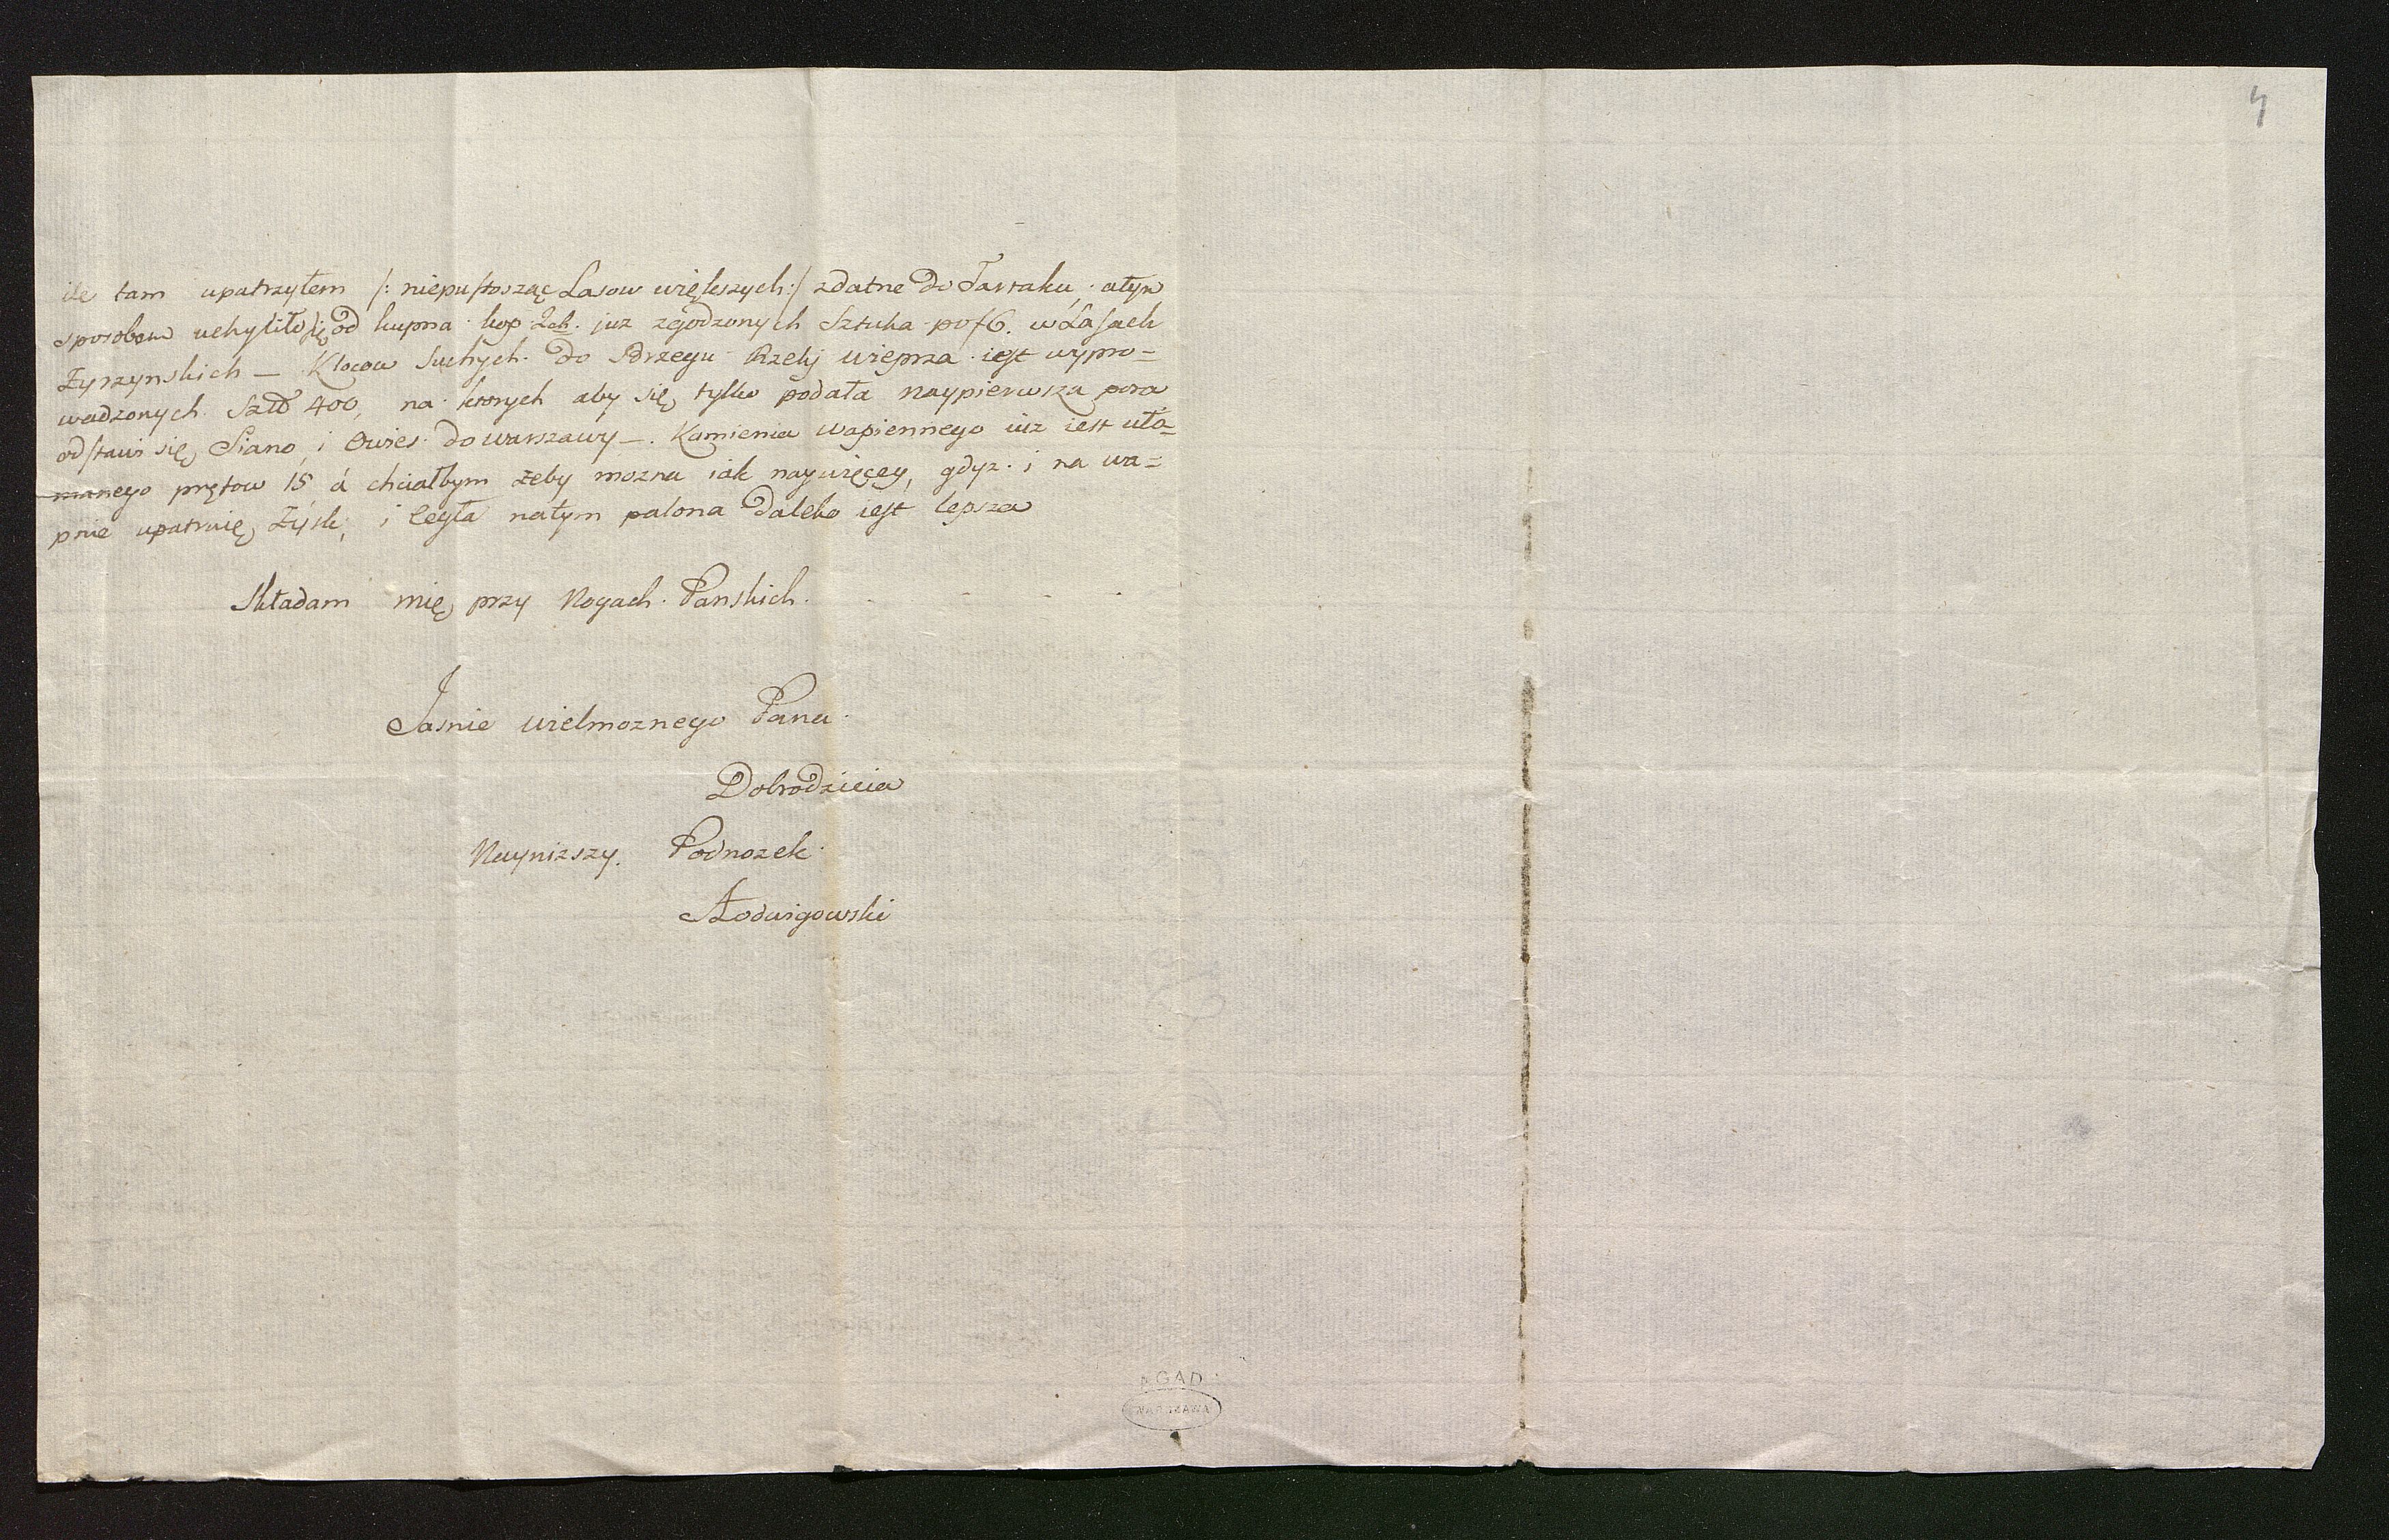 4
ile tam upatrzyłem /: niepustosząc Lasow większych :/ zdatne do Tartaku, atym
sposobem uchyliło się od kupna kop już zgodzonych Sztuka po f 6. w Lasach
Zyrzynskich — Klocow Suchych do Brzegu Rzeki wieprza iest wypro-
wadzonych Sztk 400, na ktorych aby się tylko podała naypierwsza pora
odstawi się Siano, i Owies do warszawy —. Kamienia wapiennego iuz iest uła=
manego prętow 15 á chciałbym zeby mozna iak naywięcey, gdyz i na wa=
pnie upatruię Zysk, i Cegła natym palona daleko iest lepsza
Składam mię przy Nogach Panskich.
Jasnie wielmoznego Pana
Dobrodzieia
Naynizszy. Podnozek
AGAD
WARSZAWA